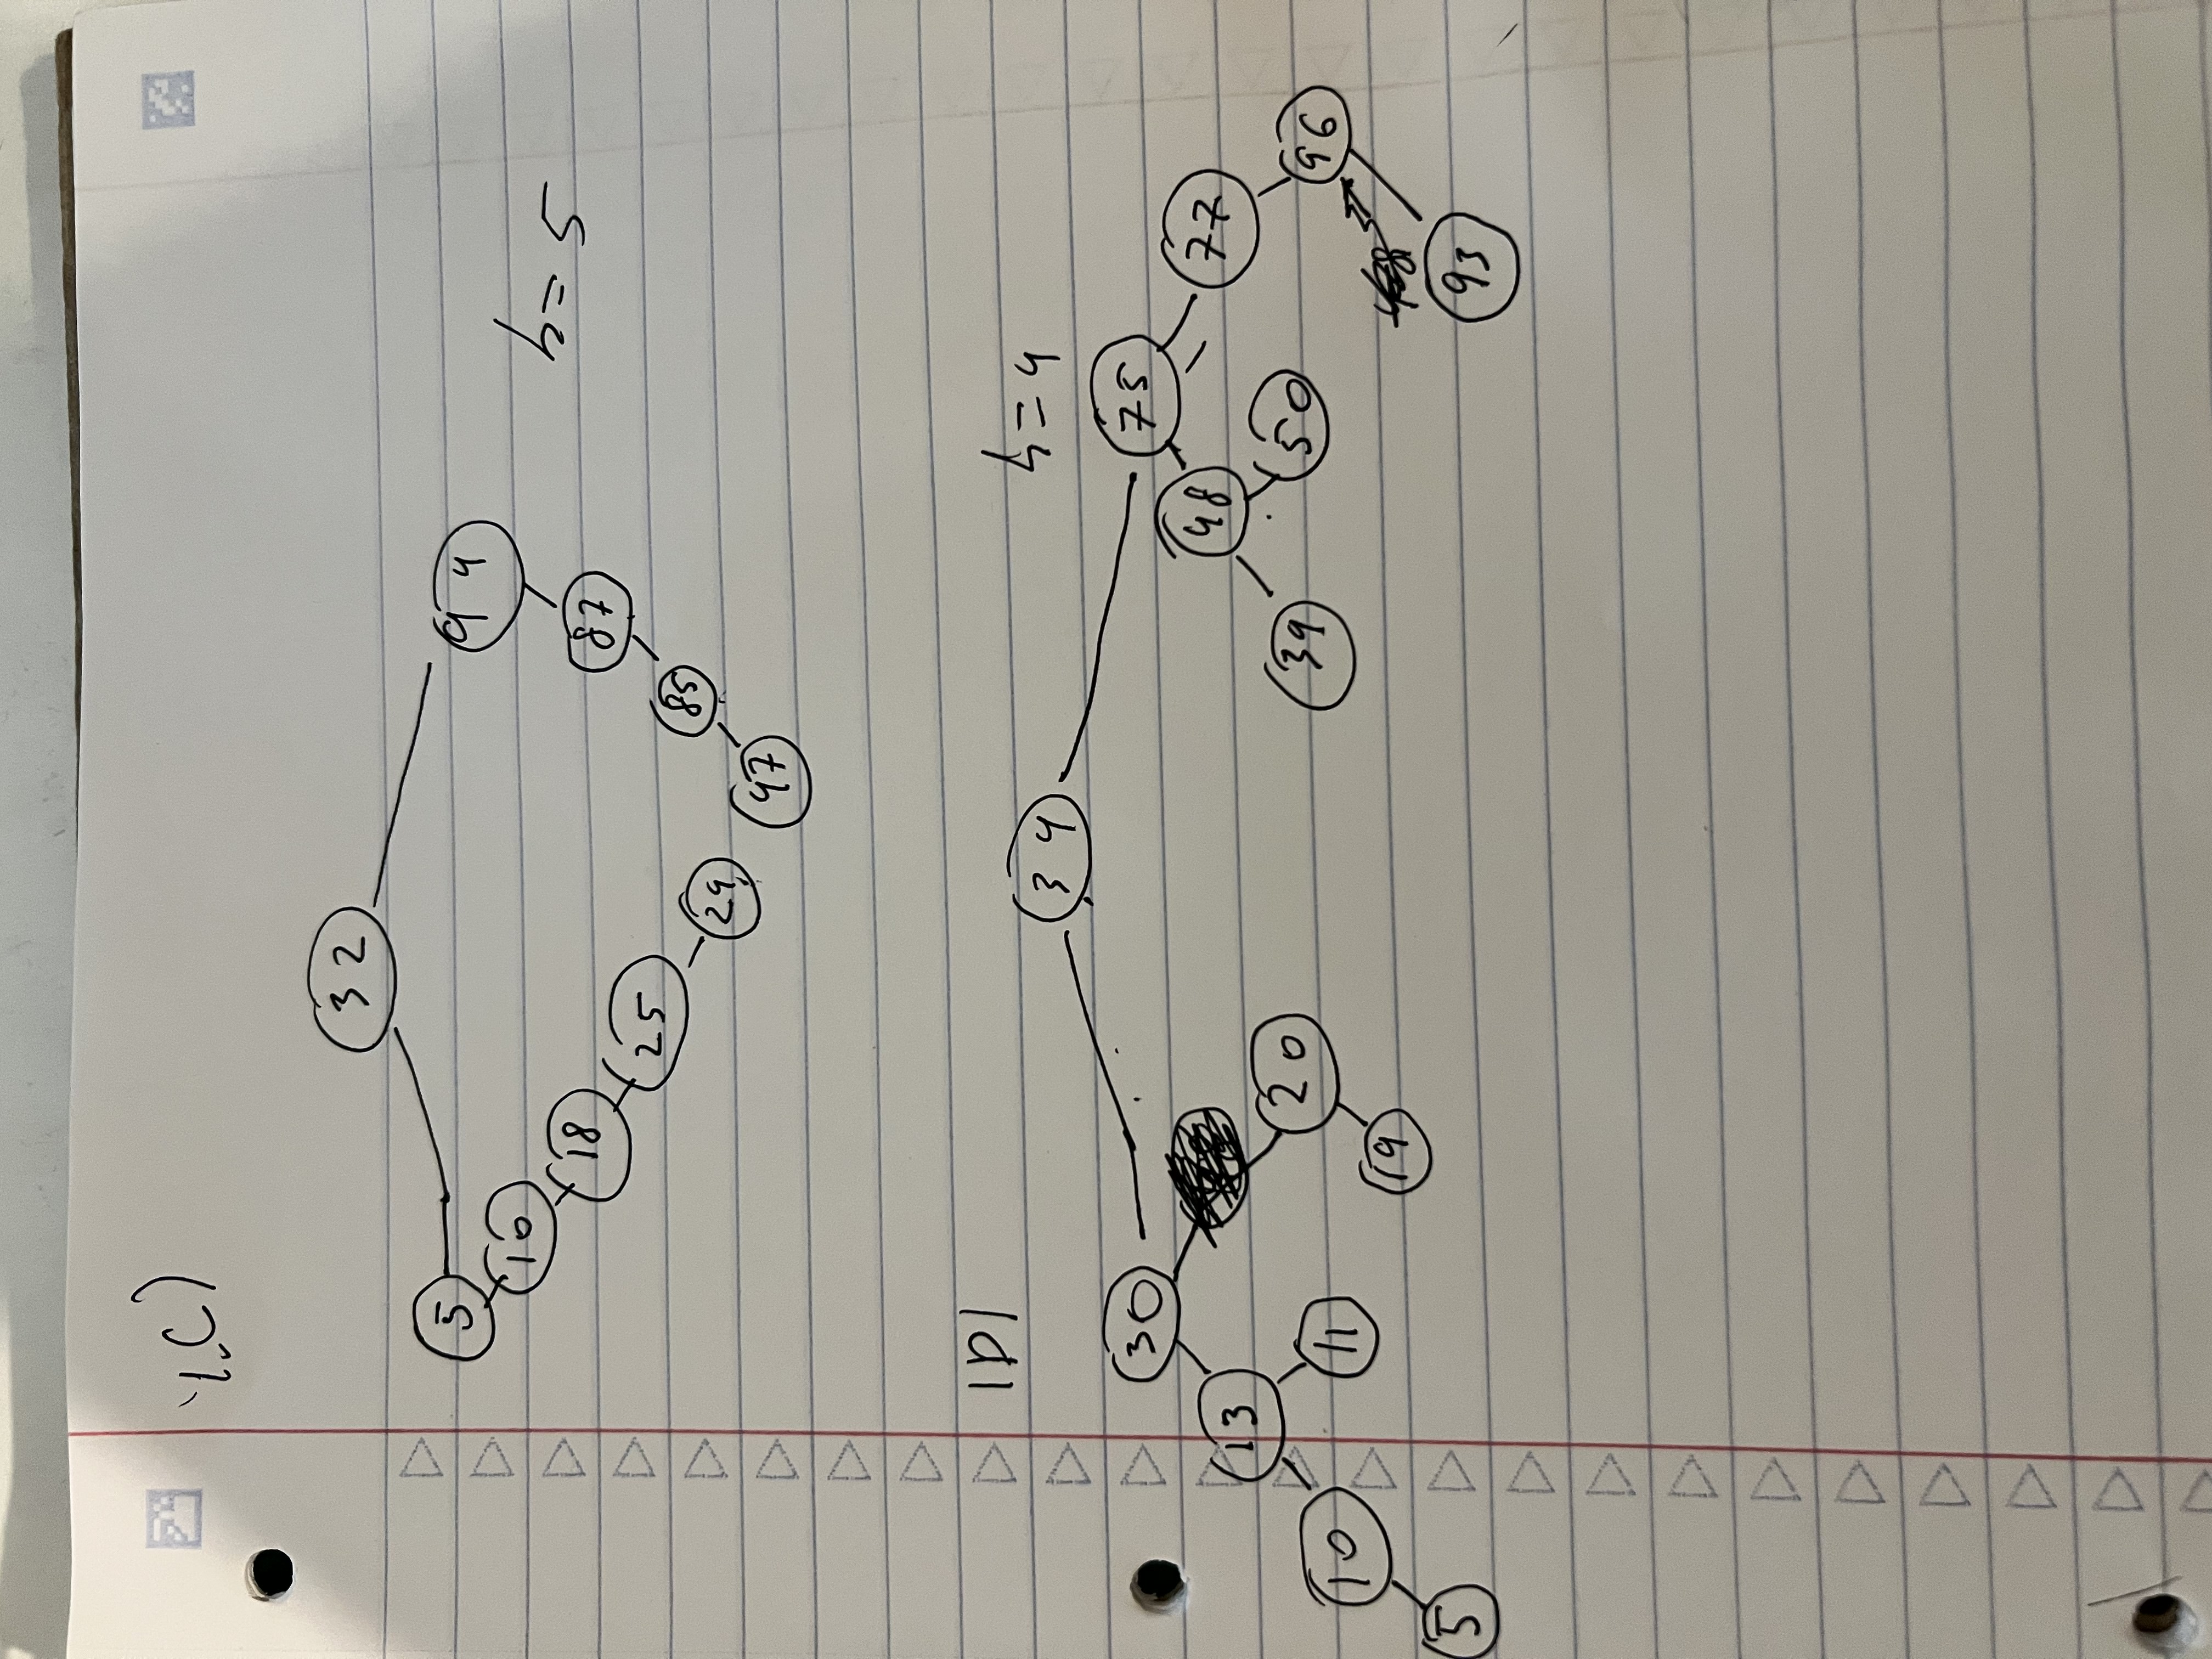 1.C)
32
5 94
10
18 87 h=5
25 85
29 47
1D)
34 h=4
30 75
13 48 77
20 39 50 96
10 11
19
5 93